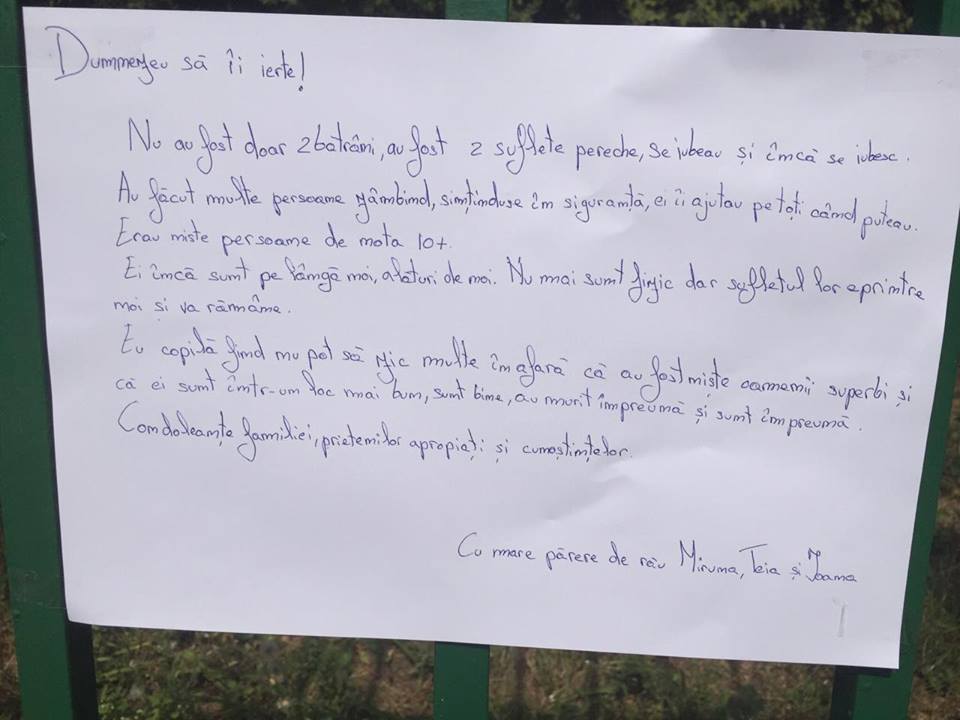 Dumnezeu să îi ierte!
Nu au fost doar 2 batrâni, au fost 2 suflete pereche, se iubeau și încă se iubesc.
Au făcut multe persoane zâmbind, simținduse în siguranță, ei îi ajutau pe toți când puteau.
Erau niste persoane de nota 10+.
Ei încă sunt pe lângă noi, alaturi de noi. Nu mai sunt fizic dar sufletul lor eprintre
noi si va rămâne.
Eu copilă fiind nu pot să zic multe în afară că au fost niște oamenii superbi și
că ei sunt într-un loc mai bun, sunt bine, au murit împreună și sunt împreună.
Condoleanțe familiei, prietenilor apropiați și cunoștințelor.
Cu mare părere de rău Miruna, Teia și Ioana